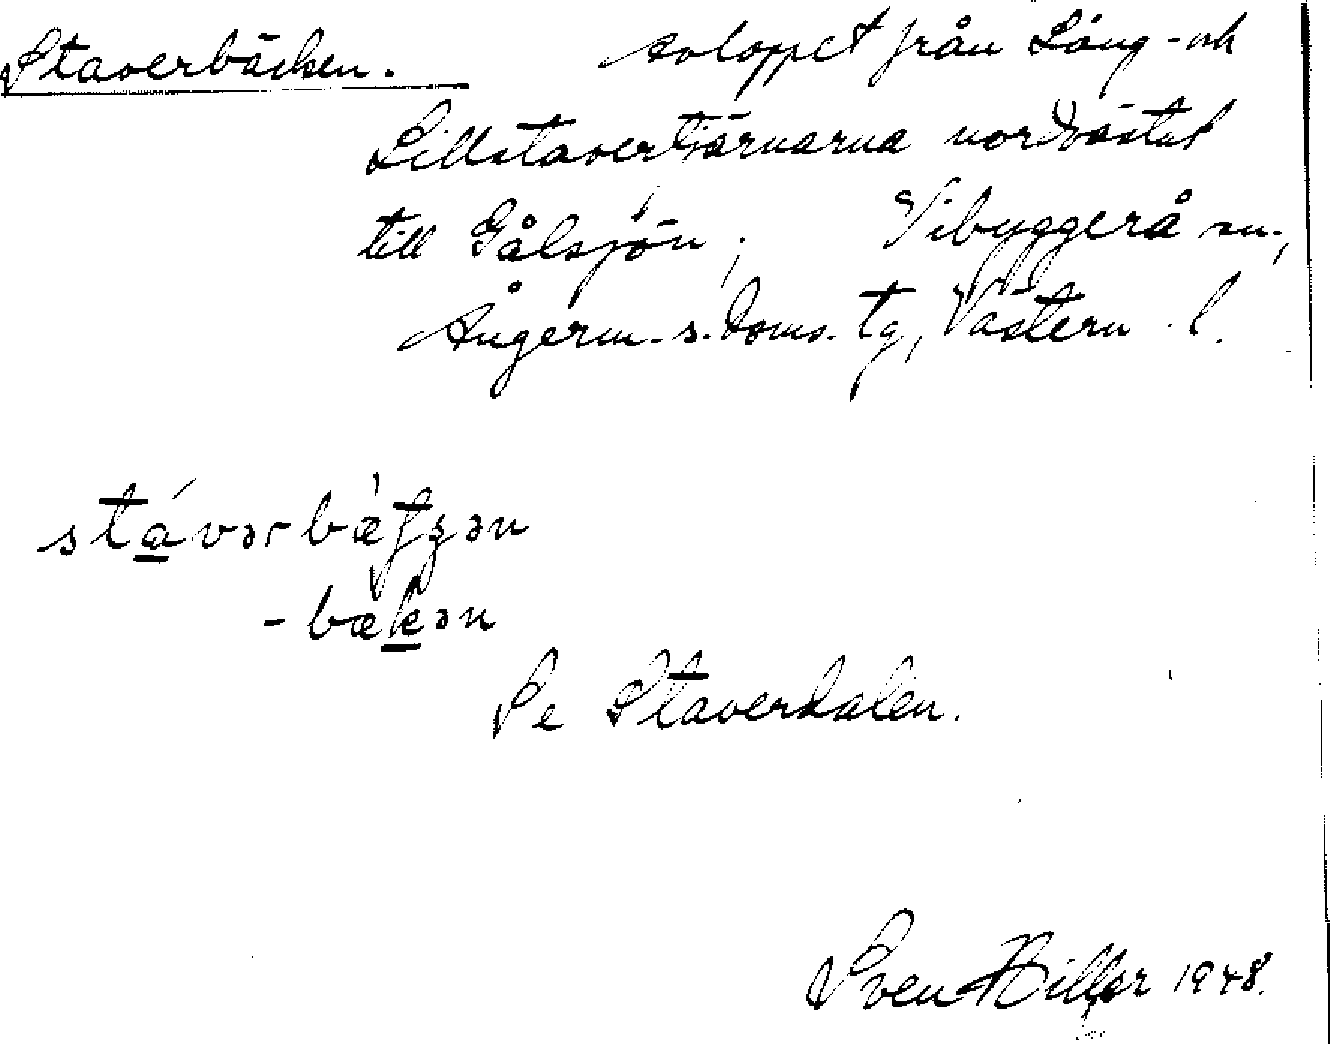 Staverbäcken. avloppet från Lång- och
Lillstavertjärnarna nordväster
till Gålsjön; Vibyggerå sn.,
Ångerm. s. doms. tg, Västern. l.
stávərbæ̀fʒən
-bækən
Se Staverdalen.
Sven Hiller 1948.